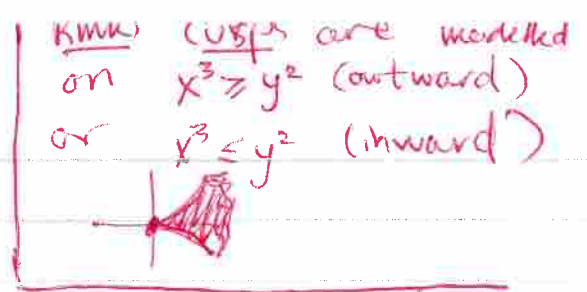 Rmk) cusps are modelled
on x³ ≥ y² (outward)
or x³ ≤ y² (inward)